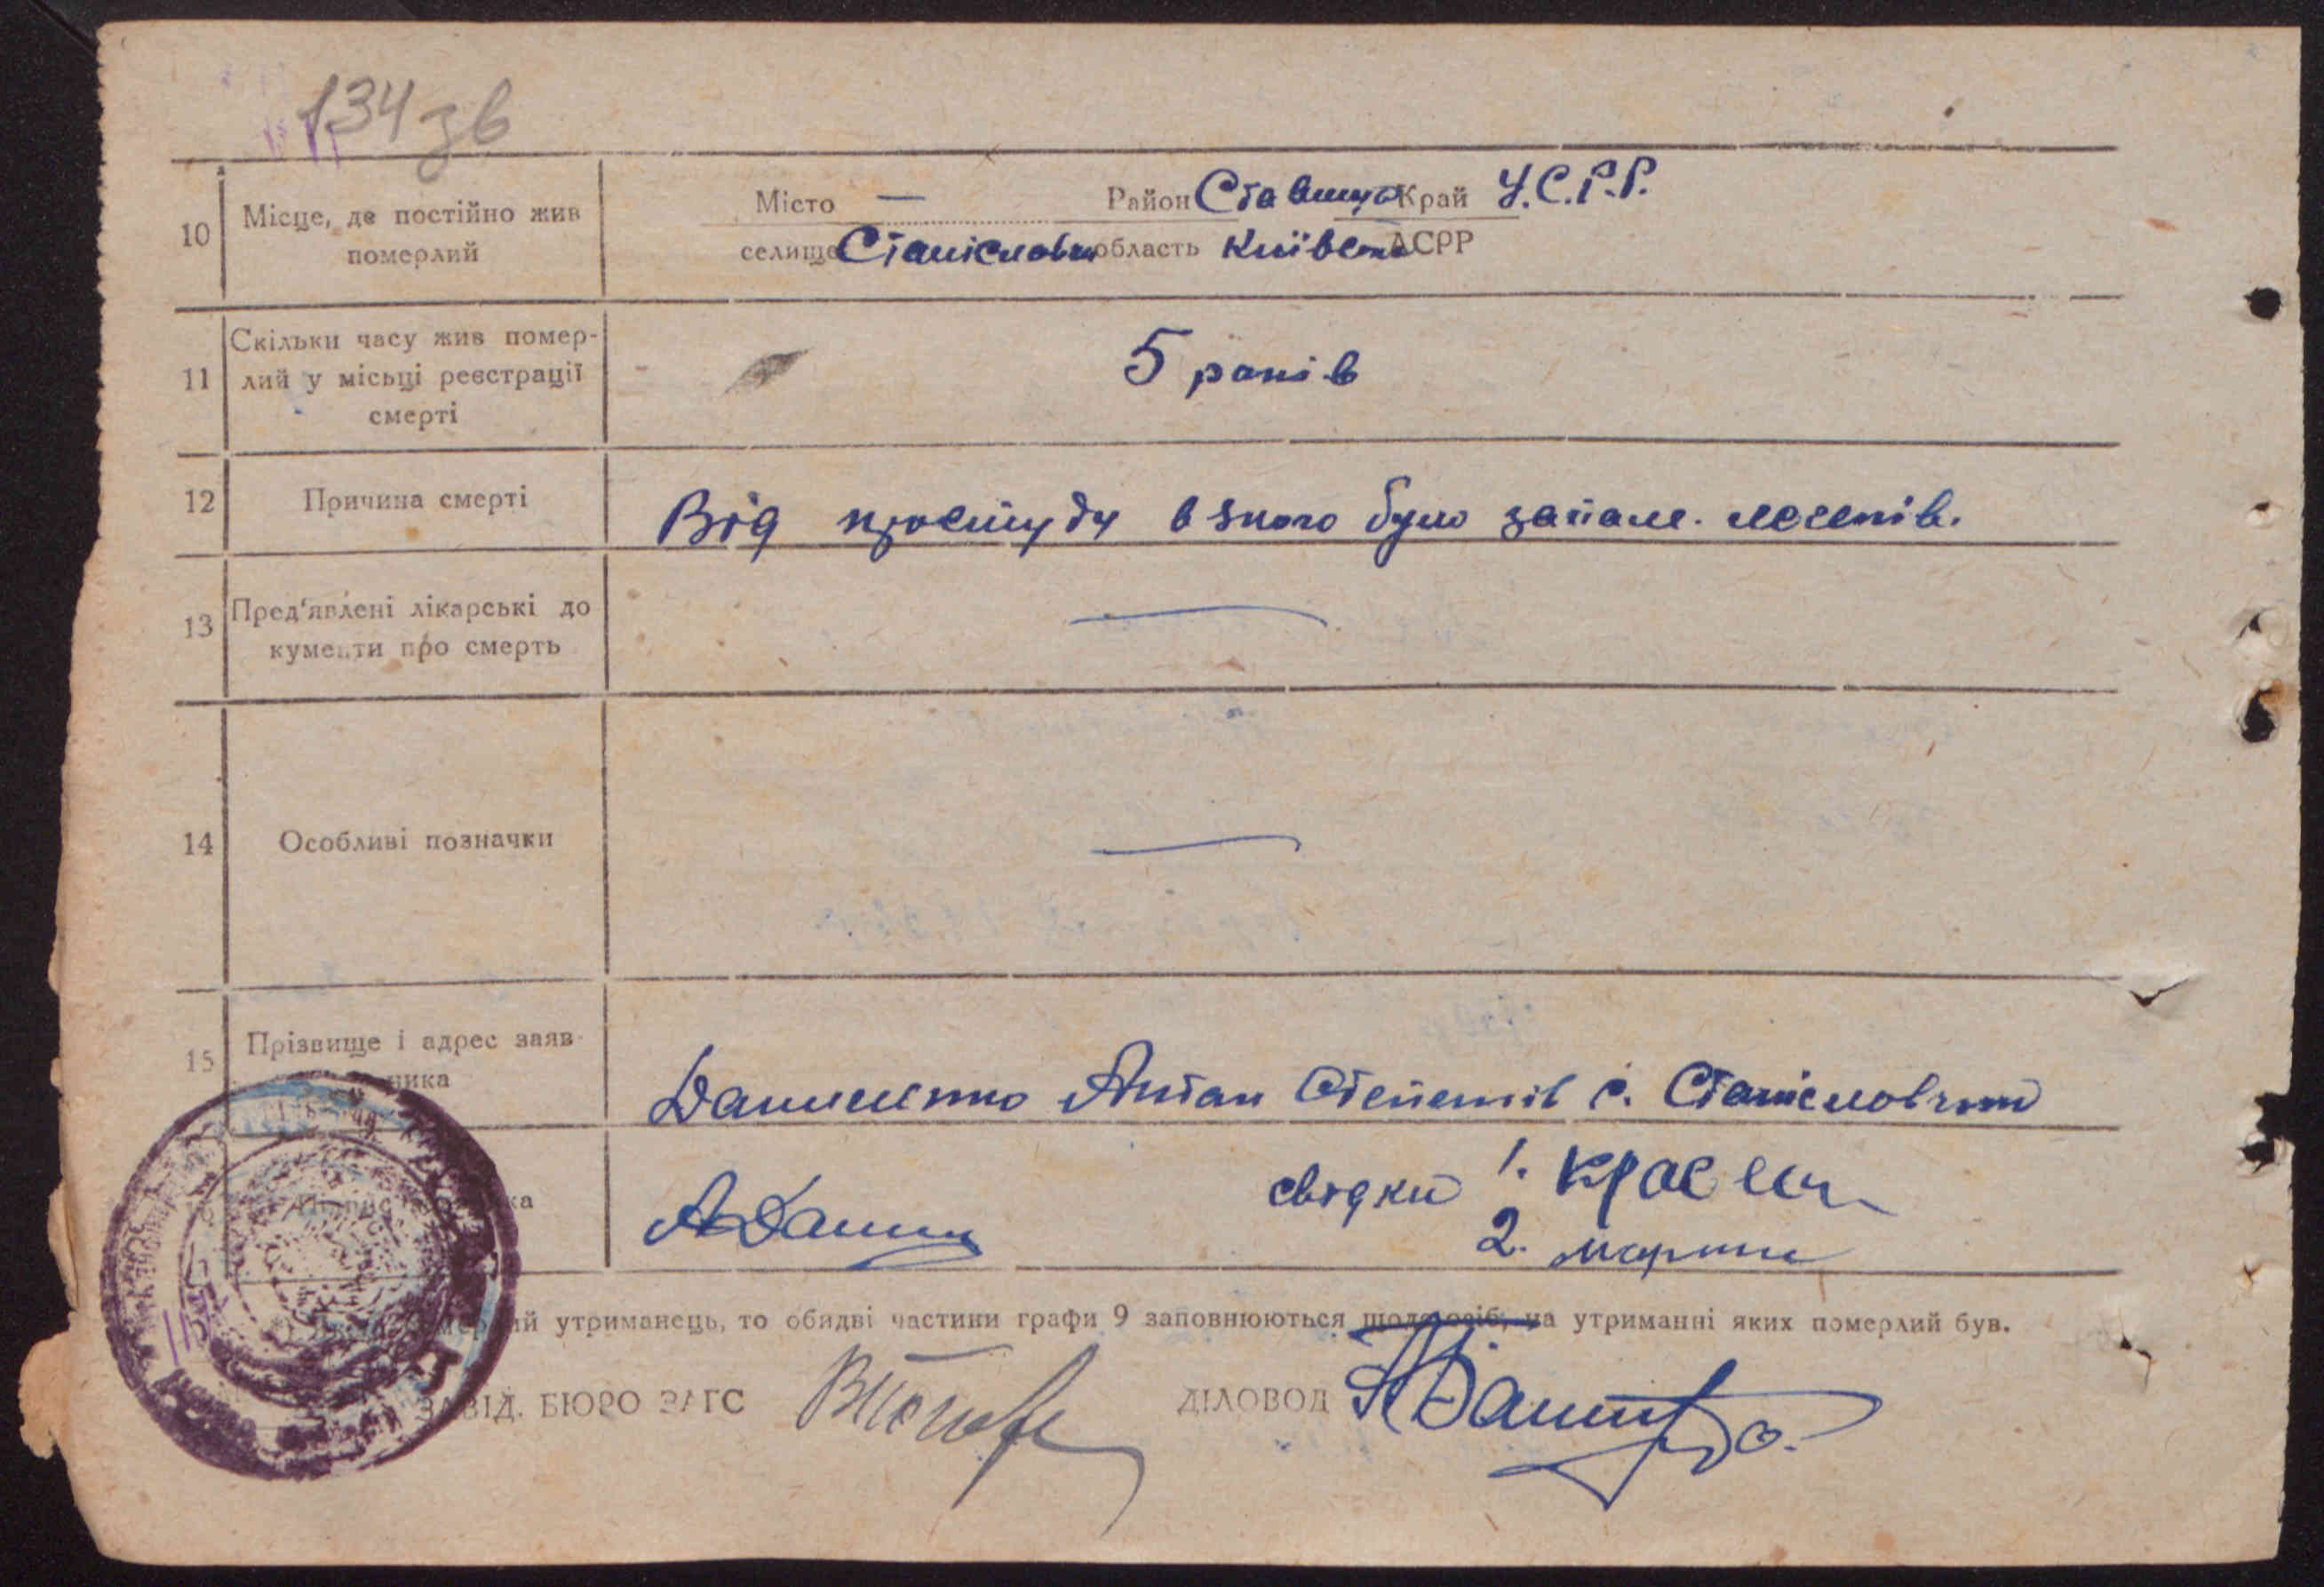 134 зв
10 Місце, де постійно жив
померлий
Місто — Район Ставище Край У.С.Р.Р.
селище Станіславчи область Київськ АСРР
11 Скільки часу жив помер-
лий у місьці реєстрації
смерті
5 років
12 Причина смерті
Від простуду було запале. легенів.
13 Пред'явлені лікарські до
кументи про смерть
—
14 Особливі позначки
—
15 Прізвище і адрес заяв-
ника
Даниленко Антан с. Станіславчик
свідки 1.
2.
ий утриманець, то обидві частини графи 9 заповнюються щодо осіб, на утриманні яких померлий був.
ЗАВІД. БЮРО ЗАГС
ДІЛОВОД